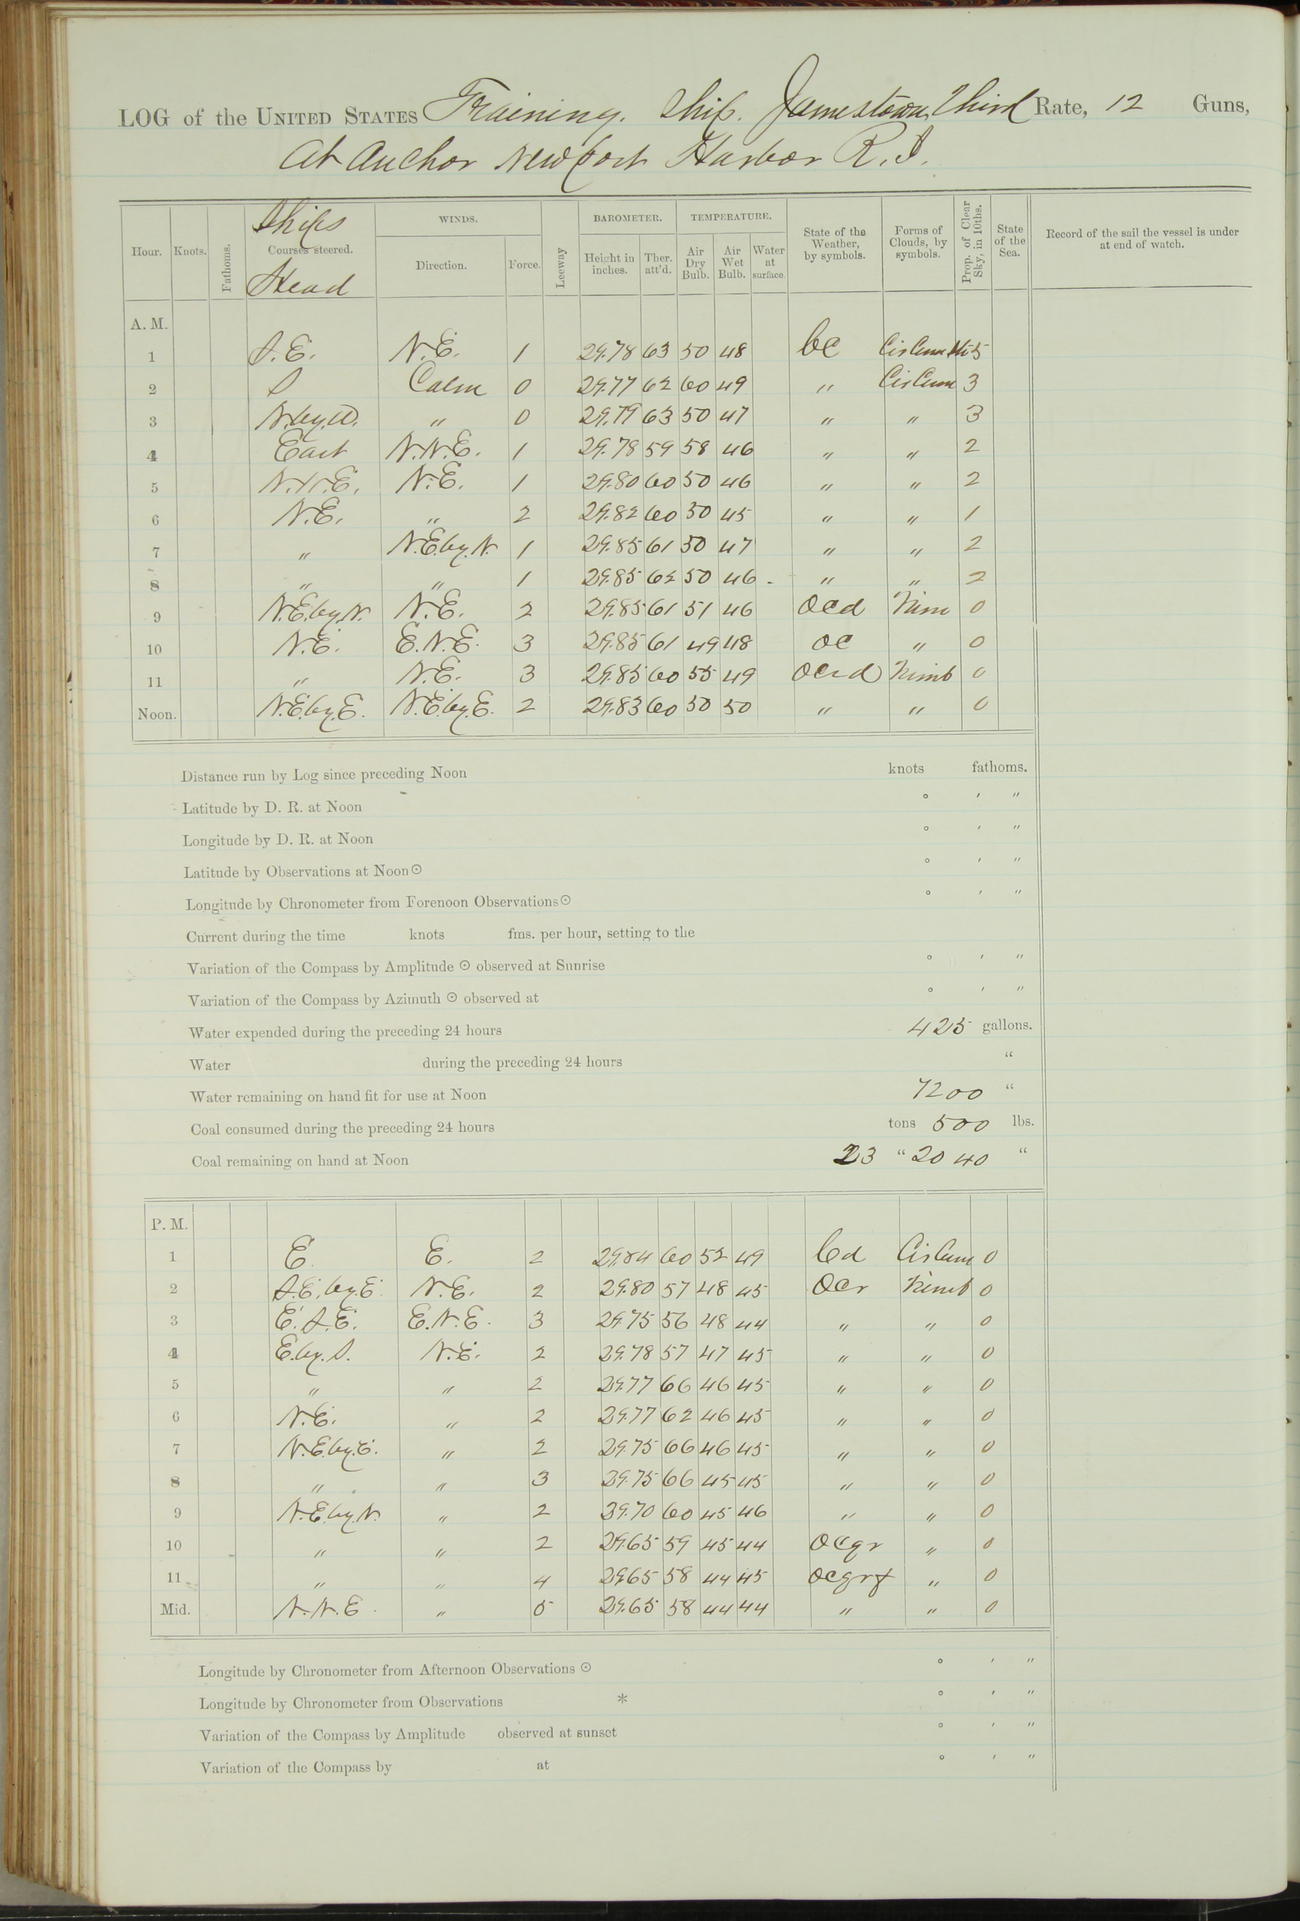 LOG of the UNITED STATES Training Ship. Jamestown, Third Rate, 12 Guns,
At Anchor Newport Harbor R.I.
Hour. Knots. Fathoms. Ships Courses steered. Head WINDS. Direction. Force. Leeway BAROMETER. Height in inches. Ther. att'd. TEMPERATURE. Air Dry Bulb. Air Wet Bulb. Water at surface. State of the Weather, by symbols. Forms of Clouds, by symbols. Prop. of Clear Sky, in 10ths. State of the Sea. Record of the sail the vessel is under at end of watch.
A. M.
1 S.E. N.E. 1 29.78 63 50 48 bc Cir Cum 5
2 S Calm 0 29.77 62 60 49 " Cir Cum 3
3 N.by.W. " 0 29.79 63 50 47 " " 3
4 East N.N.E. 1 29.78 59 58 46 " " 2
5 N.N.E. N.E. 1 29.80 60 50 46 " " 2
6 N.E. " 2 29.82 60 50 45 " " 1
7 " N.E.by.N. 1 29.85 61 50 47 " " 2
8 " " 1 29.85 62 50 46 " " 2
9 N.E.by.N. N.E. 2 29.85 61 51 46 ocd Nim 0
10 N.E. E.N.E. 3 29.85 61 49 48 oc " 0
11 " N.E. 3 29.85 60 55 49 ocrd Nimb 0
Noon. N.E.by.E. N.E.by.E. 2 29.83 60 50 50 " " 0
Distance run by Log since preceding Noon knots fathoms.
Latitude by D. R. at Noon ° ' "
Longitude by D. R. at Noon ° ' "
Latitude by Observations at Noon ☉ ° ' "
Longitude by Chronometer from Forenoon Observations ☉ ° ' "
Current during the time knots fms. per hour, setting to the
Variation of the Compass by Amplitude ☉ observed at Sunrise ° ' "
Variation of the Compass by Azimuth ☉ observed at ° ' "
Water expended during the preceding 24 hours 425 gallons.
Water during the preceding 24 hours "
Water remaining on hand fit for use at Noon 7200 "
Coal consumed during the preceding 24 hours tons 500 lbs.
Coal remaining on hand at Noon 23 " 2040 "
P. M.
1 E. E. 2 29.84 60 52 49 cd Cir Cum 0
2 S.E.by.E. N.E. 2 29.80 57 48 45 ocr Nimb 0
3 E.S.E. E.N.E. 3 29.75 56 48 44 " " 0
4 E.by.S. N.E. 2 29.78 57 47 45 " " 0
5 " " 2 29.77 66 46 45 " " 0
6 N.E. " 2 29.77 62 46 45 " " 0
7 N.E.by.E. " 2 29.75 66 46 45 " " 0
8 " " 3 29.75 66 45 45 " " 0
9 N.E.by.N. " 2 29.70 60 45 46 " " 0
10 " " 2 29.65 59 45 44 ocqr " 0
11 " " 4 29.65 58 44 45 " 0
Mid. N.N.E. " 5 29.65 58 44 44 " " 0
Longitude by Chronometer from Afternoon Observations ☉ ° ' "
Longitude by Chronometer from Observations * ° ' "
Variation of the Compass by Amplitude observed at sunset ° ' "
Variation of the Compass by at ° ' "